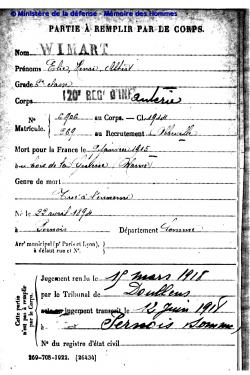 © Ministère de la défense - Mémoire des Hommes
PARTIE À REMPLIR PAR LE CORPS.
Nom WIMART
Prénoms Elie, Henri, Albert
Grade 2e classe
Corps 120e REG. D'INFanterie
N° Matricule. 6900 au Corps. — Cl. 1914
209 au Recrutement
Mort pour la France le 1915
au bois de la (Marne)
Genre de mort
Tué à l'ennemi
Né le 22 avril 1894
à Pernois Département Somme
Arr* municipal (p* Paris et Lyon),
à défaut rue et N°.
Cette partie n'est pas à remplir par le Corps.
Jugement rendu le 15 mars 1918
par le Tribunal de Doullens
jugement transcrit le 12 juin 1918
à Pernois (Somme)
N° du registre d'état civil
269-708-1922. [26434]